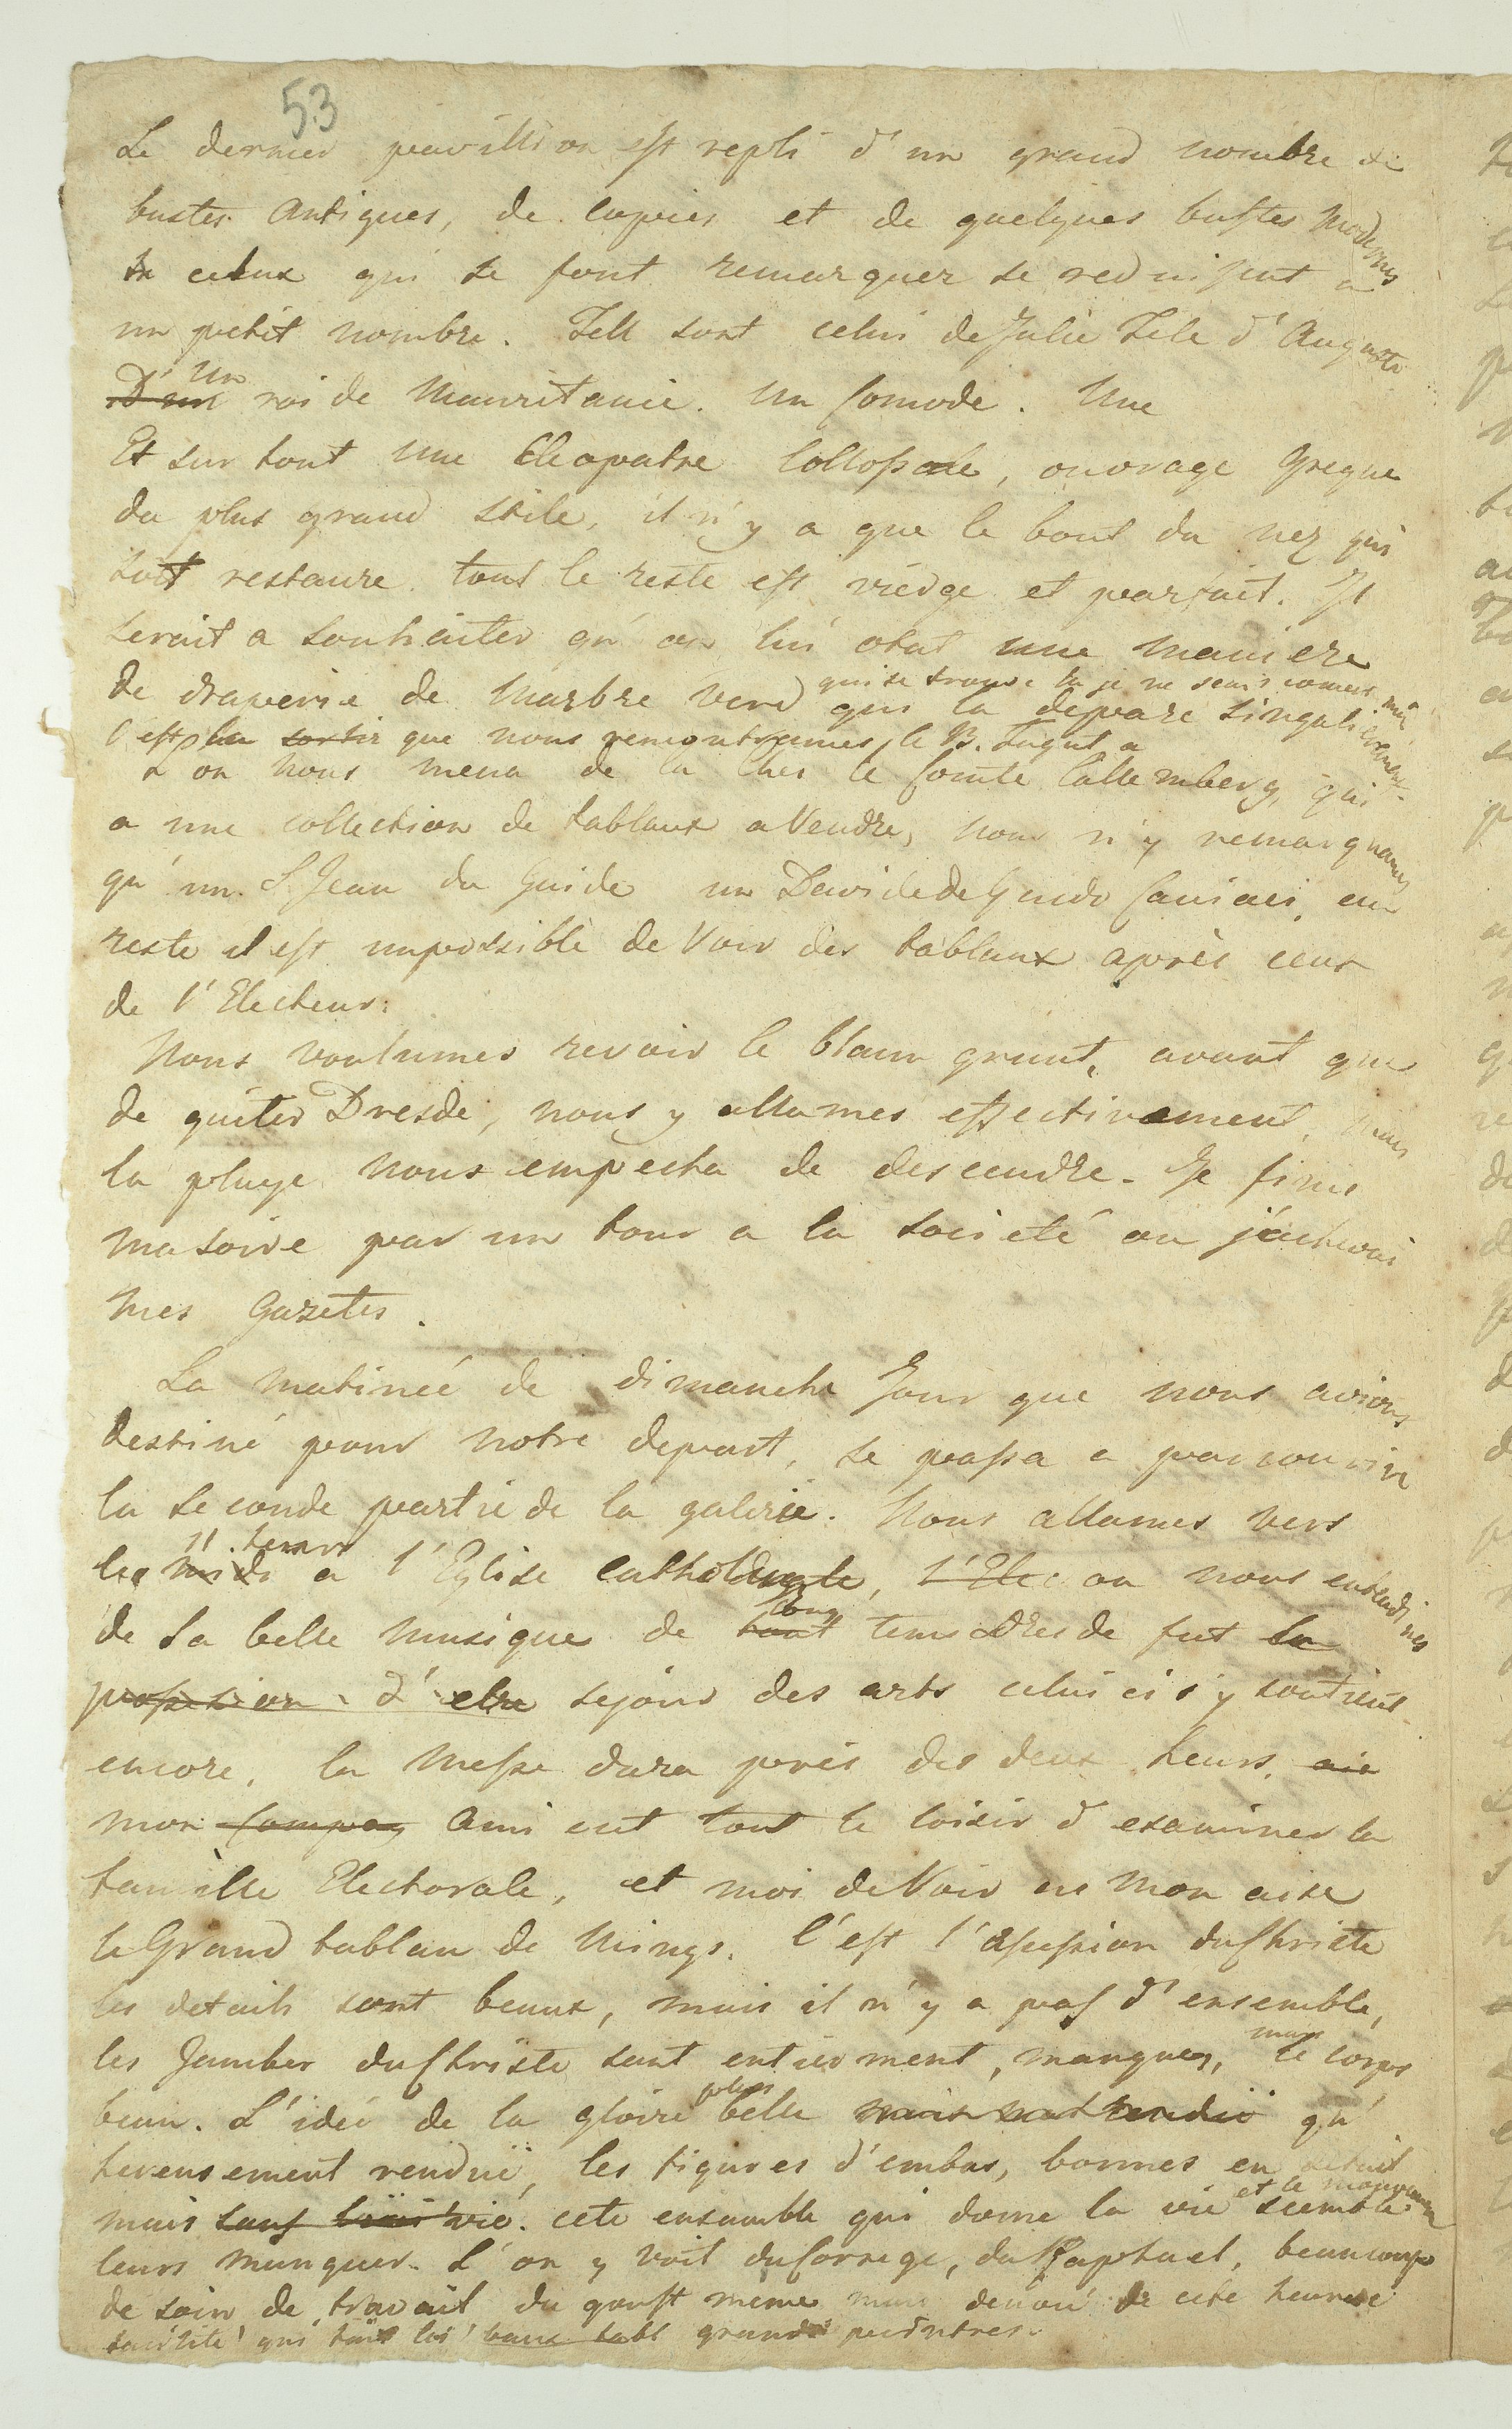 53
Le dernier pavillion est repli d'un grand nombre de
bustes Antiques, de copies et de quelques bustes modernes
ceux qui se font remarquer se reduisent a
un petit nombre. Tell sont celui de Julie file d'Auguste
D'un Un roi de Mauritanie. Un Comode. Une
Et sur tout une Cleopatre Collossale, ouvrage Greque
du plus grand stile, il n'y a que le bout du nez qui
soit restaure. tout le reste est vierge et parfait. Il
serait a souhaiter qu'on lui otat une maniere
qui se trouve la je ne sais coment
de draperie de Marbre verd qui la depare singulierement.
C'est la sortir que nous remontrames le B. Tugut a
L'on nous mena de la ches le Comte Callemberg, qui
a une collection de tablaux a Vendre, nous n'y remarquames
qu'un S. Jean du Guide un Davide de Guido Caniaci, au
reste il est impossible de Voir des tablaux après ceux
de l'Electeur.
Nous voulumes revoir le Blaun grunt, avant que
de quiter Dresde, nous y allames effectivement, mais
la pluye nous empecha de descendre. Je finis
ma soire par un tour a la societé ou j'achevai
mes Gazetes.
La matineé de dimanche Jour que nous avions
destiné pour notre depart, se passa a parcourire
la seconde partie de la galerie. Nous allames vers
11 heurs
les midi a l'Eglise catholique, l'Ele ou nous entendimes
long
de la belle musique de tout tems Dresde fut la
possession d'etre sejour des arts celui ci s'y soutient
encore, la Messe dura près des deux heurs,
mon compag Ami eut tout le loisir d'examiner la
famille Electorale, et moi de Voir en mon aise
le Grand tablau de Mings. C'est l'Assession du Christe
les details sont beaux, mais il n'y a pas d'ensemble,
mais
les Jambes du Christe sont entierment manques, le corps
plus
beau. L'ideé de la gloire belle mais mal rendüe qu'
hereusement rendüe, les figures d'embas, bonnes en detail
et le mouvement
mais sans vie. cete ensamble qui done la vie semble
leurs manquer. L'on y voit du Correge, du Raphael, beaucoup
de soin de travail du goust même mais denoué de cete heureuse
facilité qui fait les beaux tabl grands peintres.